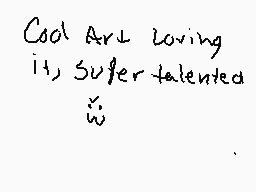 Cool Art Loving
it, super talented